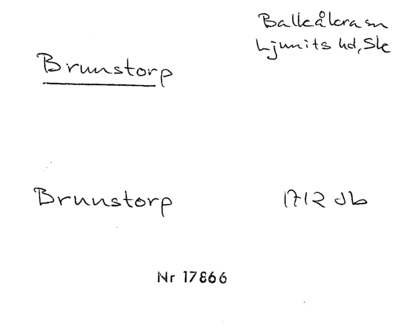 Balkåkra sn
Ljunits hd, Sk
Brunstorp
Brunnstorp
1712 Jb
Nr 17866